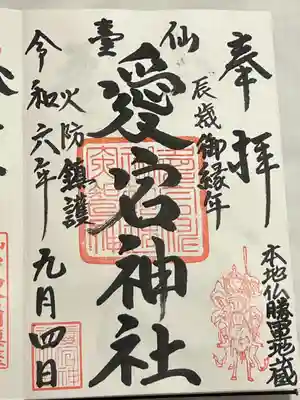 奉拝
辰歳御縁年
本地仏勝軍地蔵
仙臺
愛宕神社
火防鎮護
令和六年九月四日